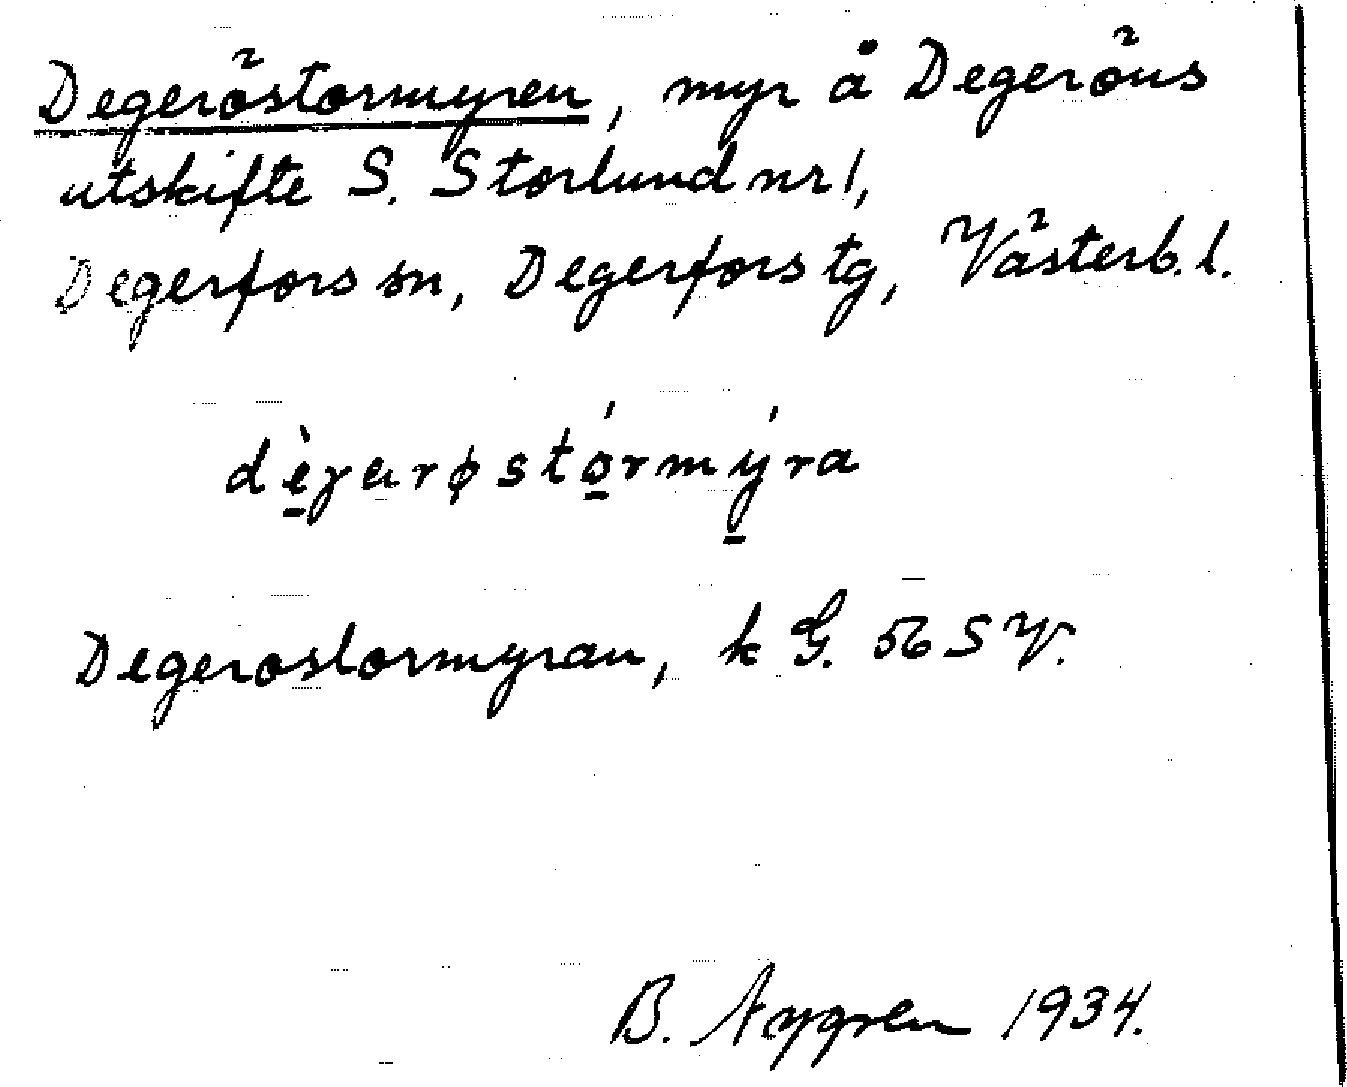 Degeröstormyren, myr å Degeröns
utskifte S. Storlund nr 1,
Degerfors sn, Degerfors tg, Västerb. l.
dèɣarøstórmýra
Degerostormyran, k G. 56 S V.
B. Nygren 1934.